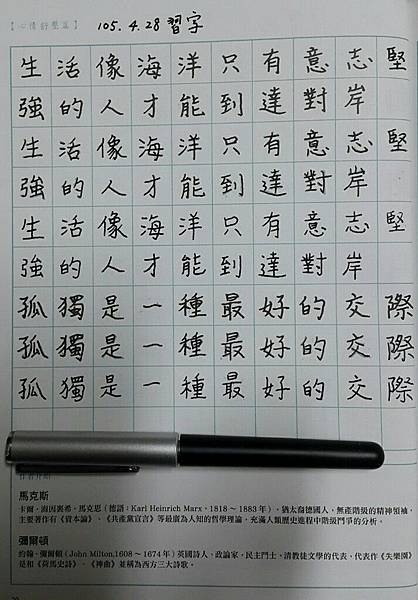 【心情舒壓篇】 105.4.28 習字
生活像海洋只有意志堅
強的人才能到達對岸
生活像海洋只有意志堅
強的人才能到達對岸
生活像海洋只有意志堅
強的人才能到達對岸
孤獨是一種最好的交際
孤獨是一種最好的交際
孤獨是一種最好的交際
作者介紹
馬克斯
卡爾．海因裏希．馬克思（德語：Karl Heinrich Marx，1818～1883年），猶太裔德國人，無產階級的精神領袖，
主要著作有《資本論》、《共產黨宣言》等最廣為人知的哲學理論，充滿人類歷史進程中階級鬥爭的分析。
彌爾頓
約翰．彌爾頓（John Milton,1608～1674年）英國詩人、政論家，民主鬥士，清教徒文學的代表，代表作《失樂園》
是和《荷馬史詩》、《神曲》並稱為西方三大詩歌。